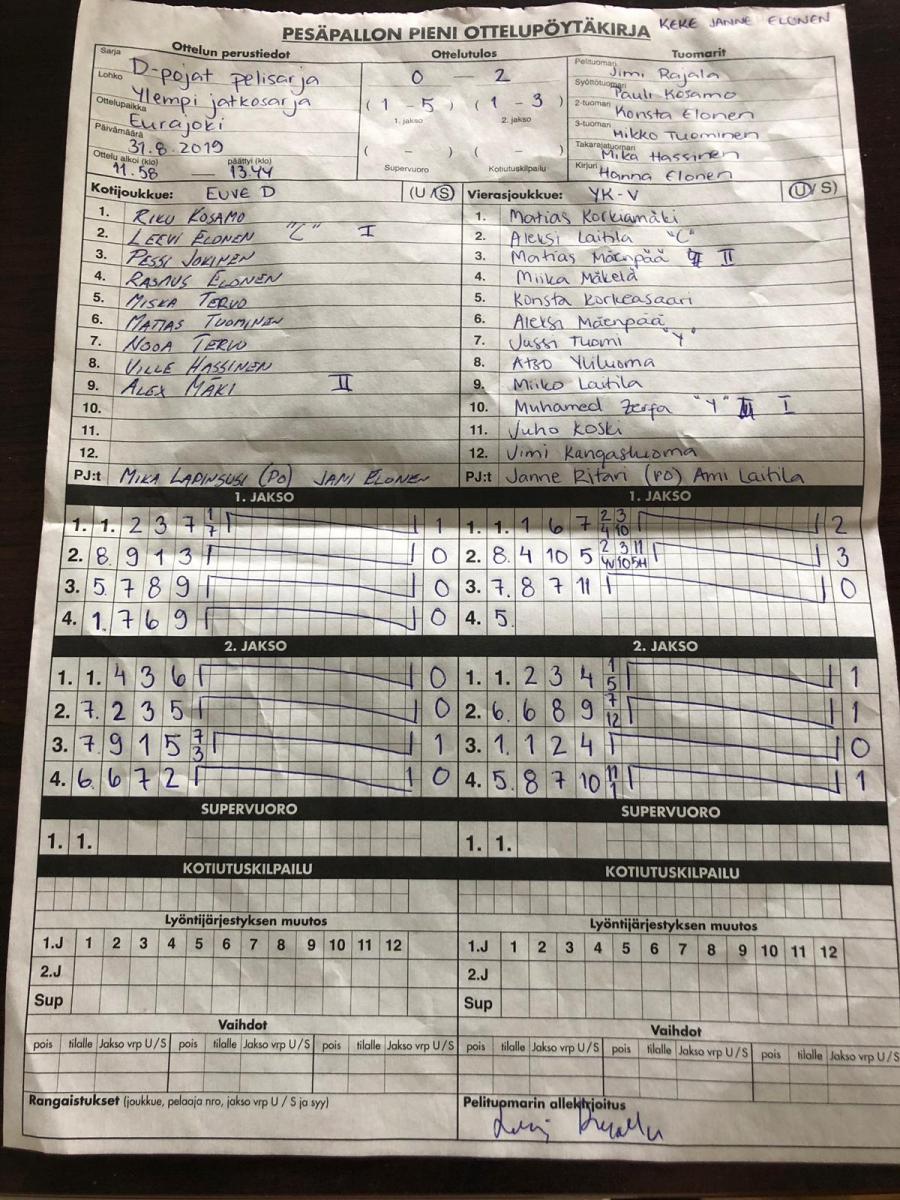 KEKE JANNE ELONEN
PESÄPALLON PIENI OTTELUPÖYTÄKIRJA
Ottelun perustiedot
Sarja
D-pojat pelisarja
Lohko
Ylempi jatkosarja
Ottelupaikka
Eurajoki
Päivämäärä
31.8.2019
Ottelu alkoi (klo) päättyi (klo)
11.58 — 13.44
Ottelutulos
0 — 2
( 1 - 5 ) ( 1 - 3 )
1. jakso 2. jakso
( - ) ( - )
Supervuoro Kotiutuskilpailu
Tuomarit
Pelituomari
Jimi Rajala
Syöttötuomari
Pauli Kosamo
2-tuomari
Konsta Elonen
3-tuomari
Mikko Tuominen
Takarajatuomari
Mika Hassinen
Kirjuri
Hanna Elonen
Kotijoukkue: EUVE D (U/S)
1. RIKU KOSAMO
2. LEEVI ELONEN "C" I
3. PESSI JOKINEN
4. RASMUS ELONEN
5. MISKA TERVO
6. MATIAS TUOMINEN
7. NOOA TERVO
8. VILLE HASSINEN
9. ALEX MÄKI II
10.
11.
12.
PJ:t MIKA LAPINSUSI (PO) JANI ELONEN
Vierasjoukkue: YK-V (U/S)
1. Matias Korkiamäki
2. Aleksi Laitila "C"
3. Matias Mäenpää II
4. Miika Mäkelä
5. Konsta Korkeasaari
6. Aleksi Mäenpää
7. Jussi Tuomi "Y"
8. Atso Yliluoma
9. Miiko Laitila
10. Muhamed Zerfa "Y" I
11. Juho Koski
12. Jimi Kangasluoma
PJ:t Janne Ritari (PO) Ami Laitila
1. JAKSO
1. 1. 2 3 7 1 7 1
2. 8. 9 1 3 0
3. 5. 7 8 9 0
4. 1. 7 6 9 0
1. JAKSO
1. 1. 1 6 7 2 3 4 10 2
2. 8. 4 10 5 2 3 11 4V 10 5H 3
3. 7. 8 7 11 0
4. 5.
2. JAKSO
1. 1. 4 3 6 0
2. 7. 2 3 5 0
3. 7. 9 1 5 7 3 1
4. 6. 6 7 2 0
2. JAKSO
1. 1. 2 3 4 1 5 1
2. 6. 6 8 9 7 12 1
3. 1. 1 2 4 0
4. 5. 8 7 10 11 1 1
SUPERVUORO
1. 1.
SUPERVUORO
1. 1.
KOTIUTUSKILPAILU
KOTIUTUSKILPAILU
Lyöntijärjestyksen muutos
1.J 1 2 3 4 5 6 7 8 9 10 11 12
2.J
Sup
Lyöntijärjestyksen muutos
1.J 1 2 3 4 5 6 7 8 9 10 11 12
2.J
Sup
Vaihdot
pois tilalle Jakso vrp U/S pois tilalle Jakso vrp U/S pois tilalle Jakso vrp U/S
Vaihdot
pois tilalle Jakso vrp U/S pois tilalle Jakso vrp U/S pois tilalle Jakso vrp U/S
Rangaistukset (joukkue, pelaaja nro, jakso vrp U / S ja syy)
Pelituomarin allekirjoitus